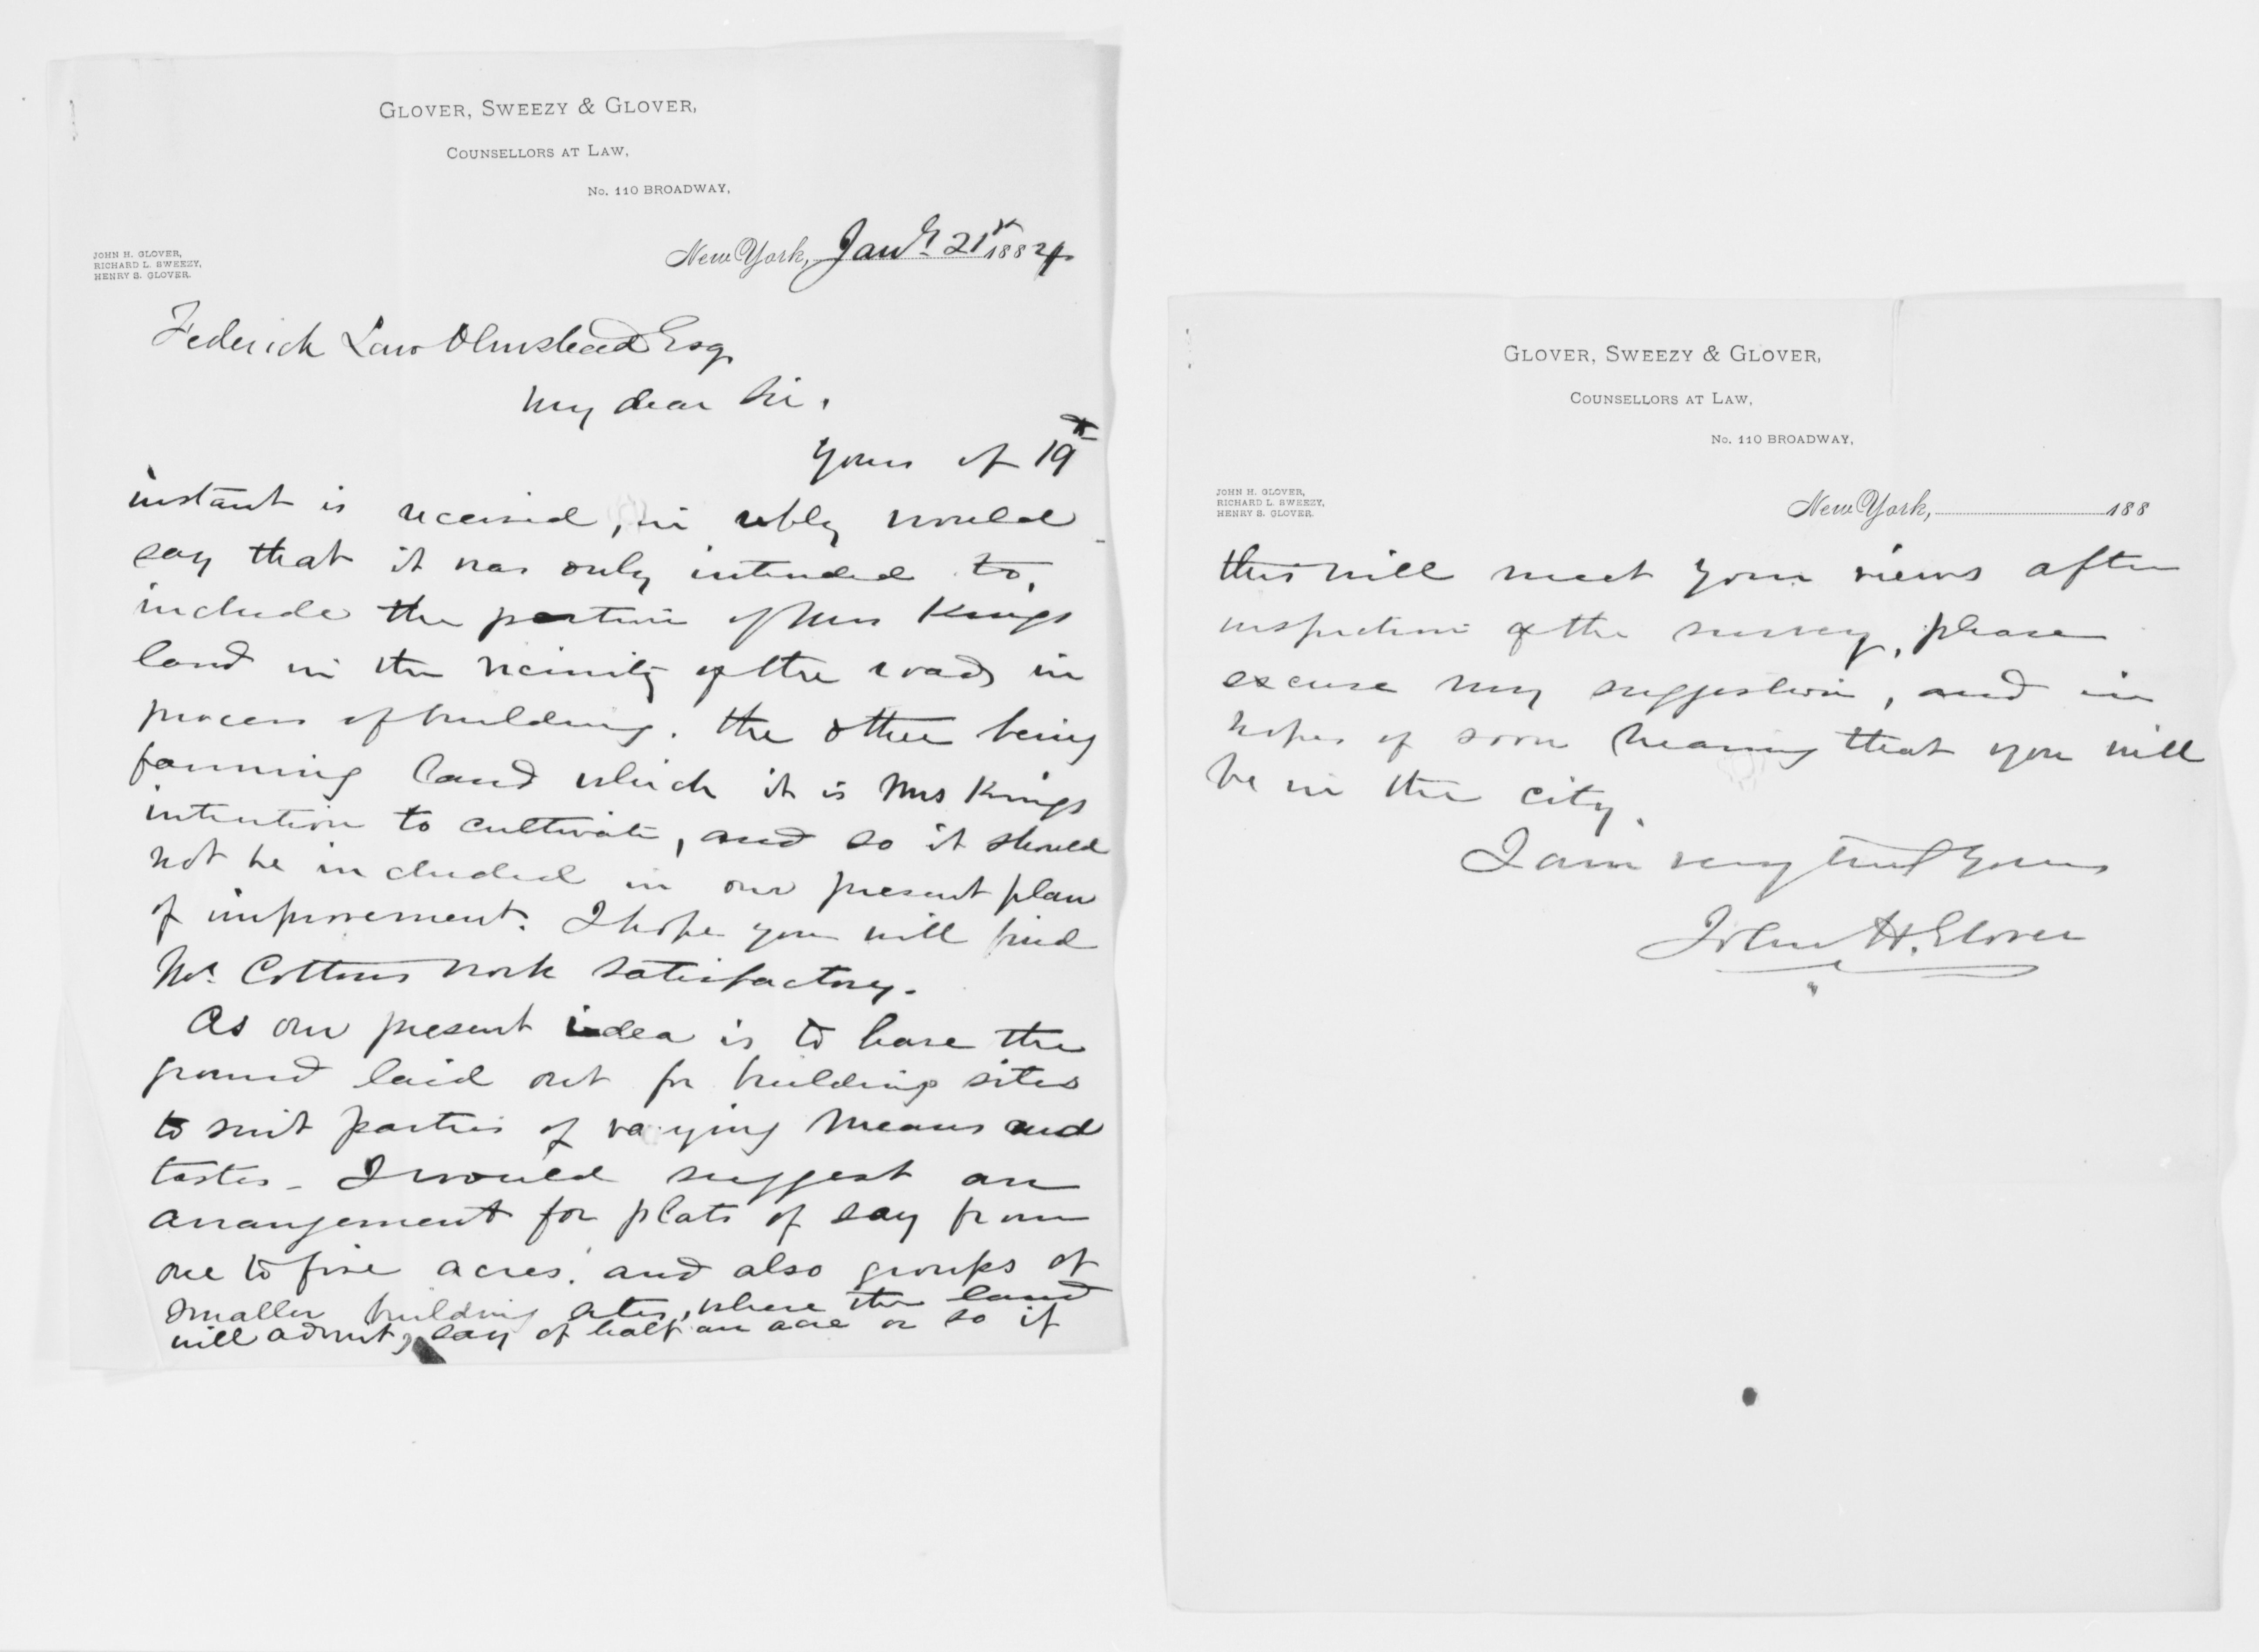 GLOVER, SWEEZY & GLOVER,
COUNSELLORS AT LAW,
No. 110 BROADWAY,
JOHN H. GLOVER,
RICHARD L. SWEEZY,
HENRY S. GLOVER.
New York, Jany 21st 1884
Federick Law Olmstead Esq
My dear Sir,
Yours of 19th
instant is received, in reply would
say that it was only intended to,
include the portion of Mrs Kings
land in the vicinity of the roads in
process of building. the other being
farming land which it is Mrs Kings
intention to cultivate, and so it should
not be included in our present plan
of improvement. I hope you will find
Mr. Cottons work satisfactory.
As our present idea is to have the
ground laid out for building sites
to suit parties of varying means and
tastes - I would suggest an
arrangement for plats of say from
one to five acres. and also groups of
smaller building sites, where the land
will admit, say of half an acre or so if
GLOVER, SWEEZY & GLOVER,
COUNSELLORS AT LAW,
No. 110 BROADWAY,
JOHN H. GLOVER,
RICHARD L. SWEEZY,
HENRY S. GLOVER.
New York, 188
this will meet your views after
inspection of the survey, please
excuse my suggestion, and in
hopes of soon hearing that you will
be in the city.
I am very truly yours
John H. Glover